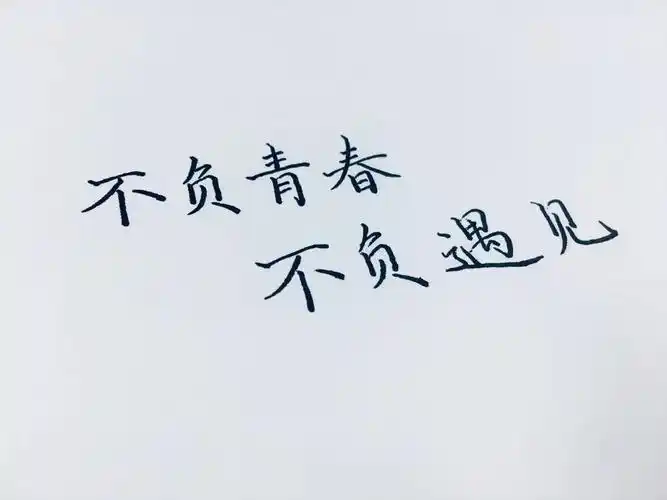 不负青春
不负遇见